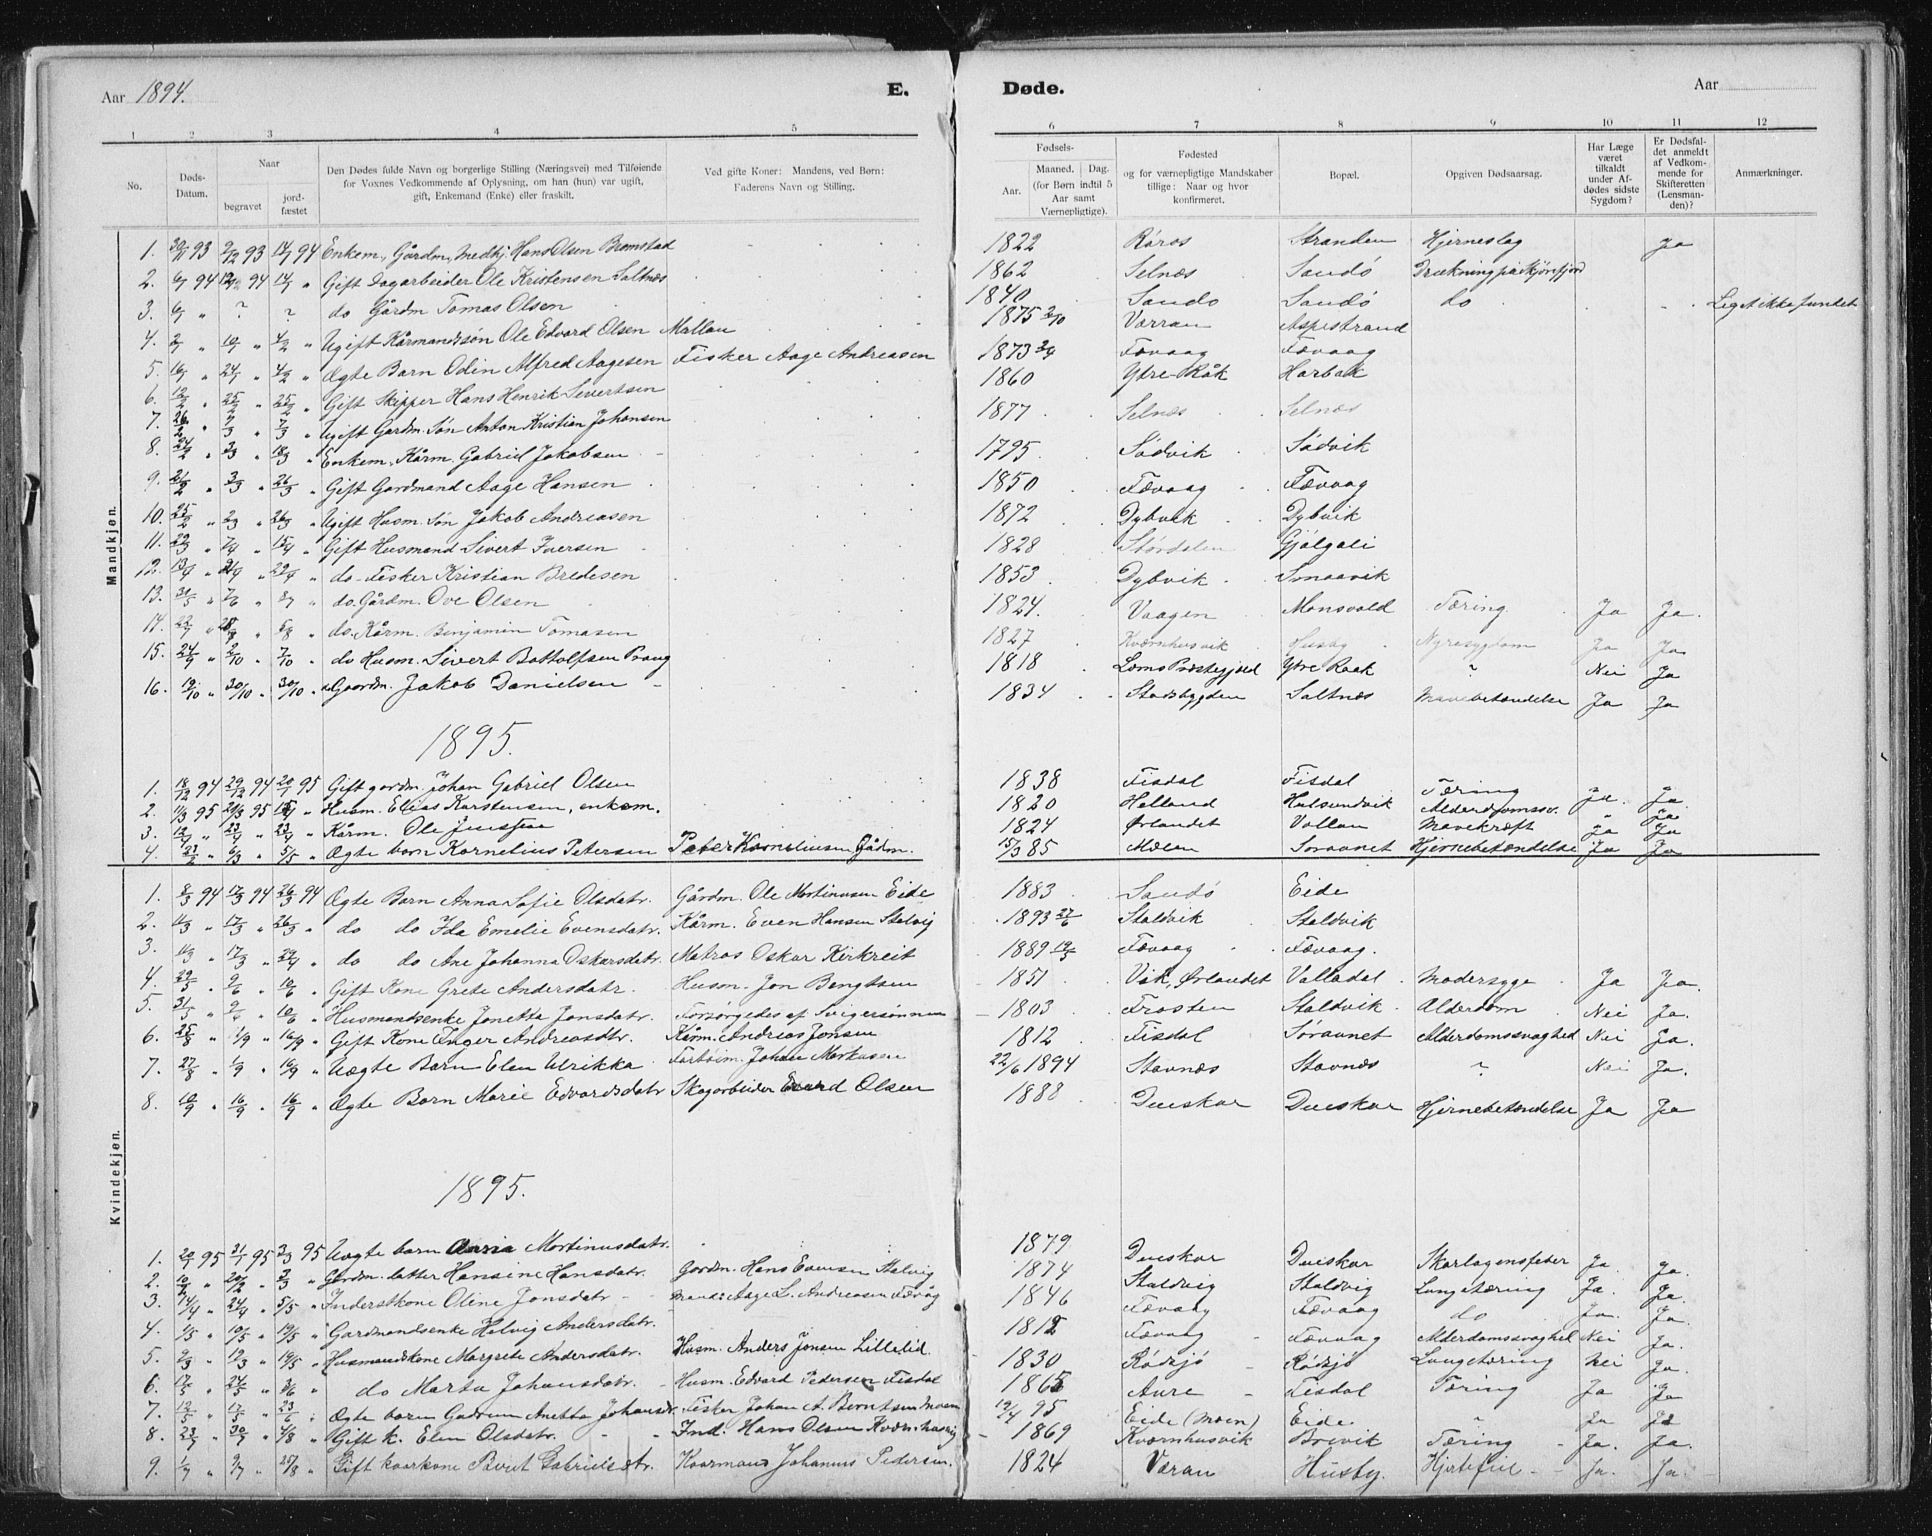 Aar 1894. E. Døde. Aar
1 2 3 4 5 6 7 8 9 10 11 12
No. Døds-Datum. Naar begravet jord-fæstet Den Dødes fulde Navn og borgerlige Stilling (Næringsvei) med Tilføiende for Voxnes Vedkommende af Oplysning, om han (hun) var ugift, gift, Enkemand (Enke) eller fraskilt. Ved gifte Koner: Mandens, ved Børn: Faderens Navn og Stilling. Fødsels- Aar. Maaned. Dag. (for Børn indtil 5 Aar samt Værnepligtige). Fødested og for værnepligtige Mandskaber tillige: Naar og hvor konfirmeret. Bopæl. Opgiven Dødsaarsag. Har Læge været tilkaldt under Afdødes sidste Sygdom? Er Dødsfaldet anmeldt af Vedkommende for Skifteretten (Lensmanden)? Anmærkninger.
Mandkjøn.
1. 30/11 93 9/12 93 14/1 94 Enkem, Gårdm, Medhj. Hans Olsen Bremstad 1822 Røros Stranden Hjerneslag Ja
2. 6/1 94 94 14/1 " Gift Dagarbeider Ole Kristensen Saltnes 1862 Selnæs Sandø Drukning på Skjørefjord
3. 6/1 " ? ? do Gårdm Tomas Olsen 1840 Sando Sandø do Liget ikke fundet
4. " " " Ugift Kårmandssøn Ole Edvard Olsen Mallan 1875 Værran Aspestrand
5. 16/1 " 24/1 " 4/2 " Ægte Barn Odin Alfred Aagesen Fisker Aage Andreasen 1873 Fævaag Fævaag
6. 12/2 " 25/2 " 25/2 " Gift Skipper Hans Henrik Sivertsen 1860 Ytre-Råk Harbak
7. 26/2 " 7/3 " 7/3 " Ugift Gardm. Søn Anton Kristian Johansen 1877 Selnæs Selnæs
8. 24/2 " 3/3 " 18/3 " Enkem, Kårm. Gabriel Jakobsen 1795 Sødvik Sødvik
9. 21/2 " 3/3 " 26/3 " Gift Gardmand Aage Hansen 1850 Fævaag Fævaag
10. 25/2 " 2/3 " 26/3 " Ugift Husm. Søn Jakob Andreasen 1872 Dybvik Dybvik
11. 22/3 " 7/4 " 15/4 " Gift Husmand Sivert Iversen 1828 Stordalen Gjølgali
12. 13/4 " 21/4 " 22/4 " do. Fisker Kristian Bredesen 1853 Dybvik Smaavik
13. 30/5 " 7/6 " 8/7 " do. Gårdm. Ove Olsen 1824. Vaagen Monsvold Tæring Ja Ja.
14. 22/7 " 28/7 " 5/8 " do. Kårm. Benjamin Tomasen 1827 Kværnhusvik Husby Nyresygdom Ja Ja
15. 24/9 " 2/10 " 7/10 " do Husm. Sivert Bottolfsen 1818 Loms Præstegjeld Ytre Raak ? Nei Ja
16. 19/10 " 30/10 " 30/10 " Gaardm. Jakob Danielsen 1834 Stadsbygden Saltnæs Mavebetændelse Ja Ja
1895.
1. 18/12 94 29/12 94 20/1 95 Gift gardm. Johan Gabriel Olsen 1838 Fisdal Fisdal Tæring Ja. Ja.
2. 11/3 95 95 " Husm. Elias Karstensen, enkem. 1820 Holland Hulsundvik Alderdomssv. " Ja
3. 12/4 " 23/4 " 23/4 " Kårm. Ole 1824 Ørlandet Vollan Mavekræft Ja Ja
4. 23/2 " 6/3 " 5/5 " Ægte barn Kornelius Petersen Peter Kornelиusen Gårdm. 15/3 85 Mælen Søravnet Hjernebetændelse Ja Ja
Kvindekjøn.
1. 8/3 94 17/3 94 26/3 94 Ægte Barn Anna Sofie Olsdatr. Gårdm. Ole Martinusen Eide 1883 Sandø Eide
2. 11/3 " 17/3 " 26/3 " do do Ida Emelie Evensdatr. Kårm. Even Hansen Stalvig 1893 27/6 Staldvik Staldvik
3. 11/3 " 17/3 " 22/4 " do do Ane Johanna Oskarsdatr. Matros Oskar Kirkreit 1889 Fævaag Fævaag.
4. 29/5 " 9/6 " 10/6 " Gift Kone Grete Andersdatr. Husm. Jon Bengtsen 1851 Vik, Ørlandet Valladal Modersyge Ja Ja.
5. 31/5 " " 10/6 " Husmandsenke Jonetta Jonsdatr. Forsørgedes af Svigersønnen 1803 Frosten Staldvik Alderdom Nei Ja.
6. 25/8 " 1/9 " 16/9 " Gift Kone Inger Andreasdtr. Kårm. Andreas Jonsen 1812 Fisdal Søravnet Alderdomssvaghed Nei Ja.
7. 27/8 " 1/9 " 16/9 " Uægte Barn Elen Ulrikka Johan Markusen 22/6 1894 Stavnæs Stavnæs ? Nei Ja.
8. 10/9 " 16/9 " 16/9 " Ægte Barn Marie Edvardsdatr Skogarbeider Olsen 1888 Dueskar Dueskar Hjernebetændelse Ja Ja
1895.
1. 20/1 95 31/1 95 3/3 95 Uægte barn Anna Martinusdatr. 1879 Dueskar Dueskar Skarlagensfeber Ja Ja.
2. 10/2 " 20/2 " 3/3 " Gardm. datter Hansine Hansdatr. Gardm. Hans Evensen Stalvig 1874 Staldvig Staldvig Lungetæring Ja. Ja.
3. 14/4 " 24/4 " 5/5 " Inderstkone Oline Jonsdatr Mand: Aage L. Andreasen Fævåg 1846 Fævaag Fævaag do Ja. Ja.
4. 1/5 " 10/5 " 19/5 " Gardmandsenke Helvig Andersdatr. 1812 Fævaag Fævaag Alderdomssvaghed Nei Ja.
5. " " 19/5 " Husmandskone Margrete Andersdatr. Husm. Anders Jonsen Lillelid. 1830 Rødsjø Rødsjø Lungetæring Nei Ja.
6. 17/5 " 24/5 " 3/6 " do Marta Johansdatr. Husm. Edvard Pedersen Fisdal 1865 Aure Fisdal Tæring Ja Ja
7. 12/5 " 17/5 " 23/6 " Ægte barn Gudrun Anetta Johansdr. Fisker Johan A. Berntsen Moen 19/4 95 Eide (Moen) Eide " Ja Ja
8. 23/7 " 30/7 " 4/8 " Gift k. Elen Olsdatr. Ind. Hans Olsen 1869 Kværnhusvik Brevik Tæring Ja. Ja.
9. 1/7 " 9/7 " 25/8 " Gift kaarkone Berit Gabrielsdtr. Kaarmand Johannes Pedersen. 1824 Væran Husby. Hjertefeil Ja. Ja.